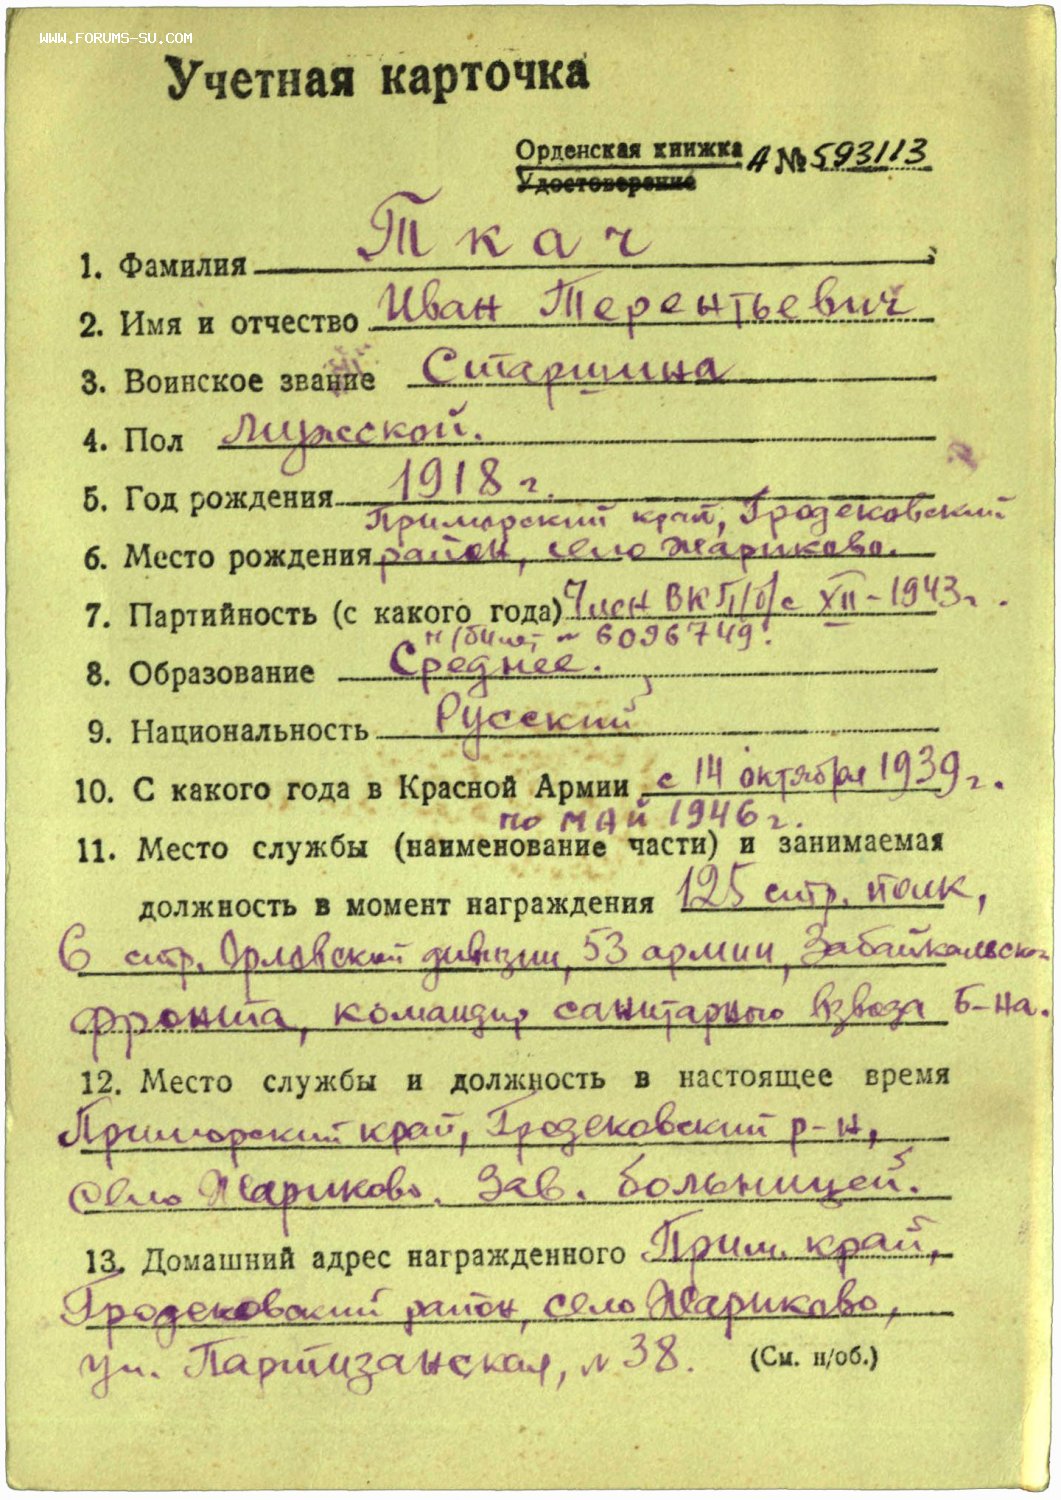 WWW.FORUMS-SU.COM
Учетная карточка
Орденская книжка А № 593113
Удостоверение
1. Фамилия Ткач
2. Имя и отчество Иван Терентьевич
3. Воинское звание Старшина
4. Пол Мужской.
5. Год рождения 1918 г.
Приморский край, Гродековский
6. Место рождения район, село Жариково.
7. Партийность (с какого года) Член ВКП/б/ с XII - 1943 г.
п/билет № 6096749.
8. Образование Среднее.
9. Национальность Русский
10. С какого года в Красной Армии с 14 октября 1939 г.
по май 1946 г.
11. Место службы (наименование части) и занимаемая
должность в момент награждения 125 стр. полк,
6 стр. Орловский дивизии, 53 армии, Забайкальско
фронта, командир санитарного взвода б-на.
12. Место службы и должность в настоящее время
Приморский край, Гродековский р-н,
село Жариково. Зав. больницей.
13. Домашний адрес награжденного Прим. край,
Гродековский район, село Жариково,
ул. Партизанская, № 38. (См. н/об.)